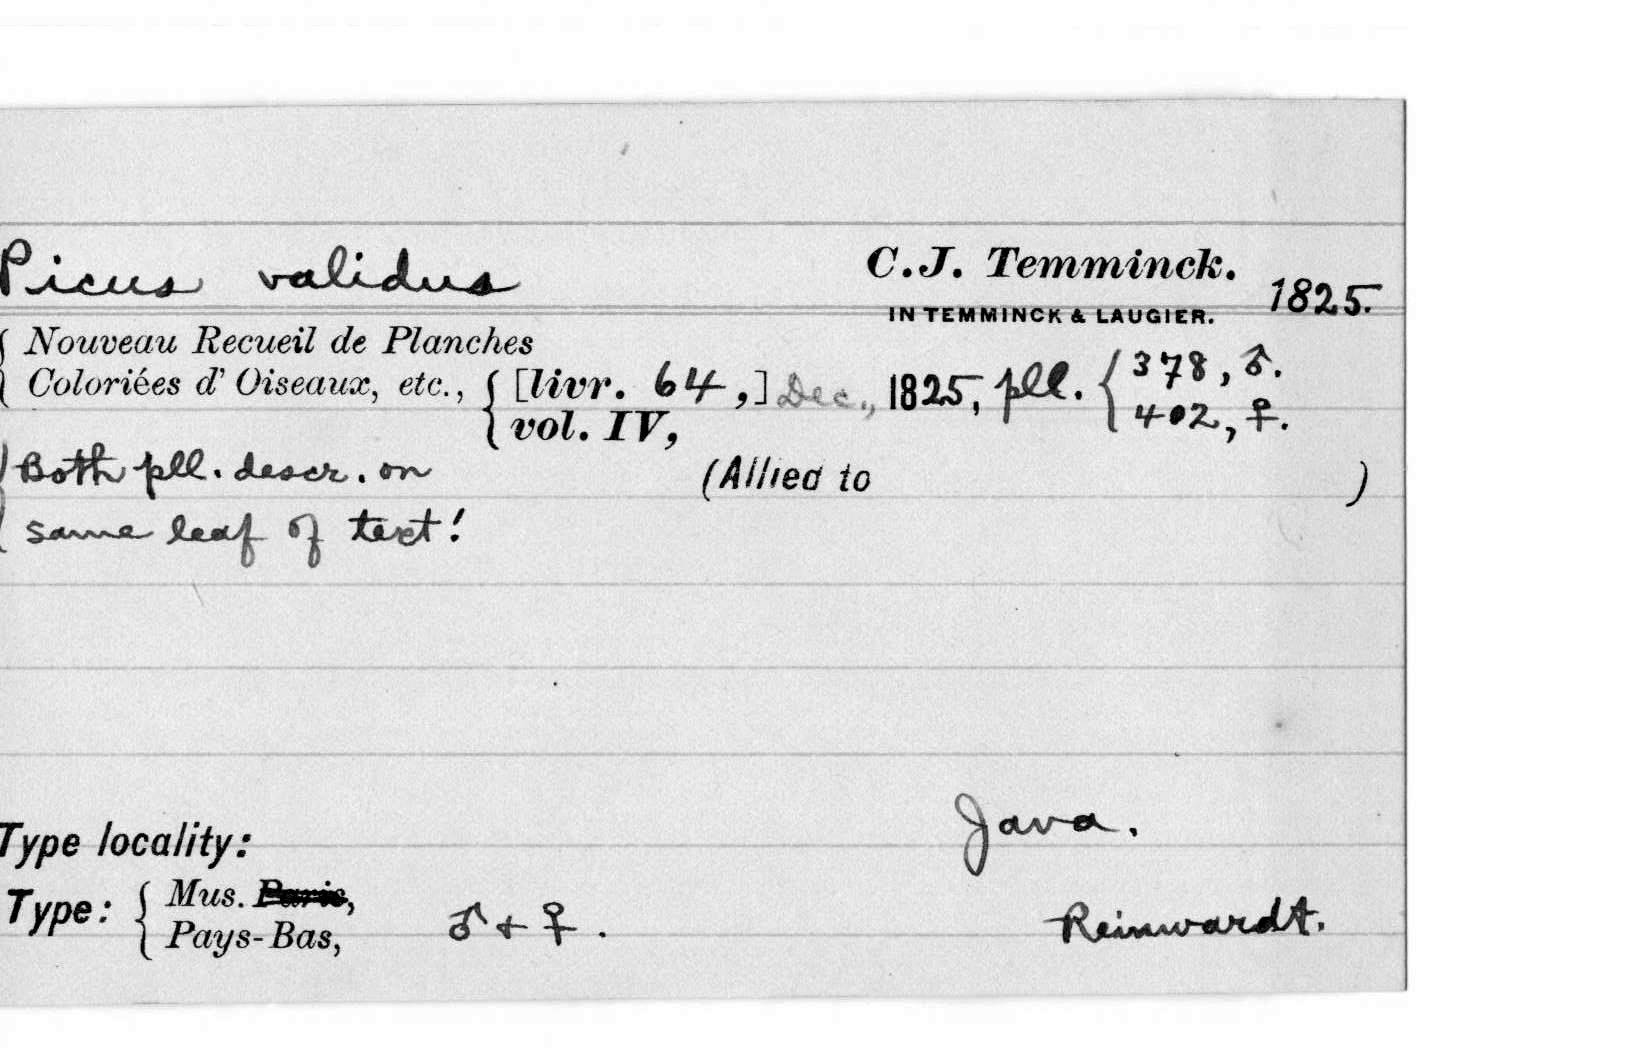 Picus validus C.J. Temminck. 1825.
IN TEMMINCK & LAUGIER.
{ Nouveau Recueil de Planches
Coloriées d' Oiseaux, etc., { [livr. 64,] Dec., 1825, pll. { 378, ♂.
vol. IV, 402, ♀.
Both pll. descr. on (Allied to )
same leaf of text!
Type locality: Java.
Type: { Mus. Paris,
Pays-Bas, ♂ + ♀. Reinwardt.